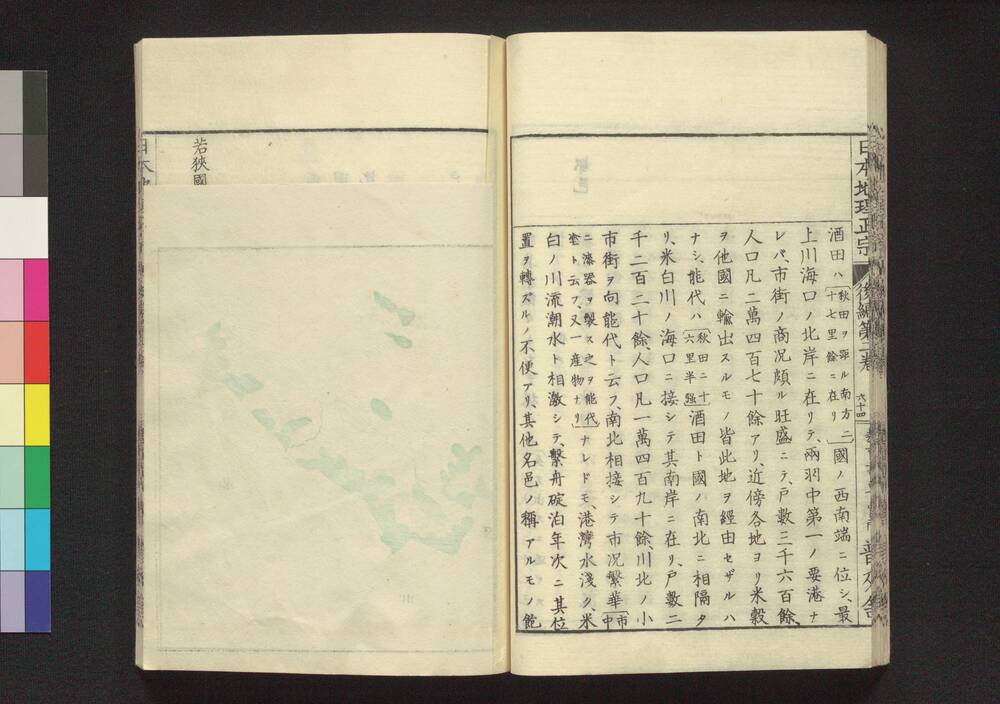 日本地理正宗
後編第二卷
六十四
酒田ハ(秋田ヲ距ル南方二十七里餘ニ在リ)國ノ西南端ニ位シ、最
上川海口ノ北岸ニ在リテ、兩羽中第一ノ要港ナ
レバ、市街ノ商況頗ル旺盛ニテ、戸數三千六百餘、
人口凡二萬四百七十餘アリ、近傍各地ヨリ米穀
ヲ他國ニ輸出スルモノ皆此地ヲ經由セザルハ
ナシ、能代ハ(秋田ニ十六里半强)酒田ト國ノ南北ニ相隔タ
リ、米白川ノ海口ニ接シテ其南岸ニ在リ、戸數二
千二百二十餘、人口凡一萬四百九十餘、川北ノ小
市街ヲ向能代ト云フ、南北相接シテ市况繁華(市中
ニ漆器ヲ製ス之ヲ能代塗ト云フ、又一産物ナリ)ナレドモ、港灣水淺ク、米
白ノ川流潮水ト相激シテ、繫舟碇泊年次ニ其位
置ヲ轉ズルノ不便アリ、其他名邑ノ稱アルモノ飽
若狹國